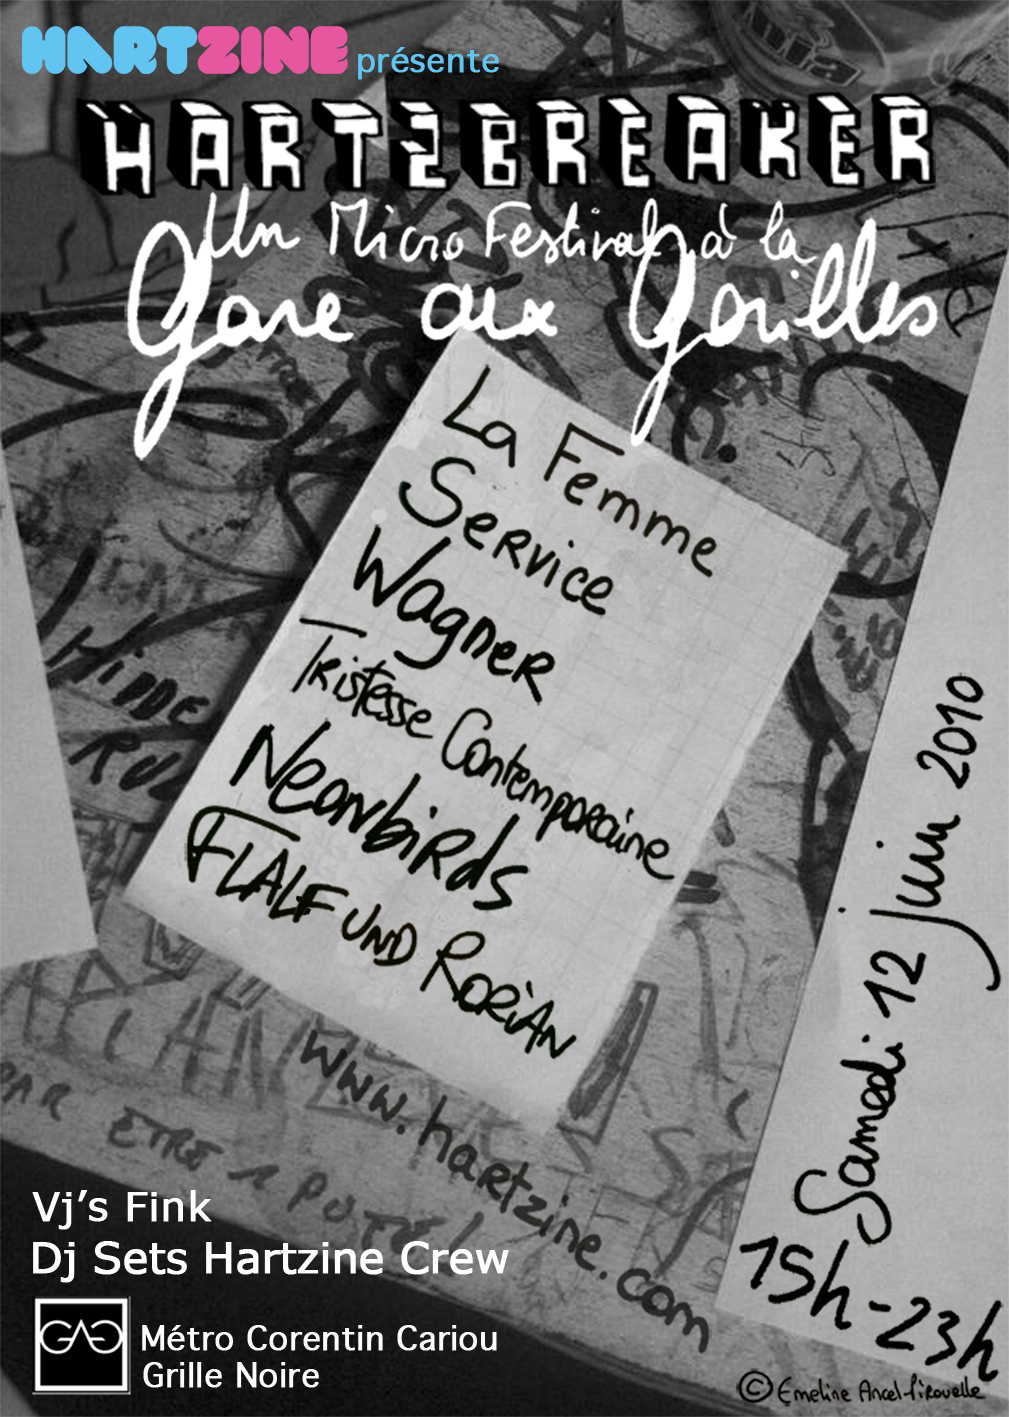 HARTZINE présente
HARTZBREAKER
Un Micro Festival à la
Gare aux Gorilles
La Femme
Service
Wagner
Tristesse Contemporaine
Neonbirds
FLALF UND RORIAN
www.hartzine.com
Samedi 12 juin 2010
15h-23h
HIDDE
PAR ETRE 1 POTE!
Vj's Fink
Dj Sets Hartzine Crew
GAG
Métro Corentin Cariou
Grille Noire
© Emeline Ancel-Pirouelle